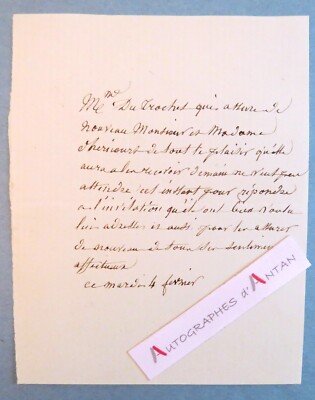 Mme Du Trochet qui assure de
nouveau Monsieur et Madame
de tout le plaisir qu'elle
aura a les recevoir demain ne veut pas
attendre cet instant pour repondre
a l'invitation qu'ils ont bien voulu
lui adresser et aussi pour les assurer
de nouveau de tous ses sentimens
affectueux
ce mardi 4 fevrier
AUTOGRAPHES d'ANTAN